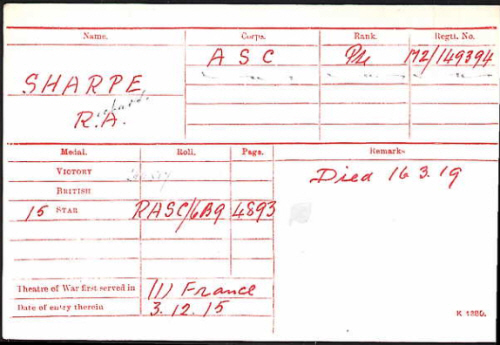 Name. Corps. Rank. Regtl. No.
A S C Pte M2/149394
SHARPE
R.A.
Medal. Roll. Page. Remarks
VICTORY
BRITISH
15 STAR RASC/6B9 4893
Died 16 3.19
Theatre of War first served in (1) France
Date of entry therein 3.12.15
K 1380.